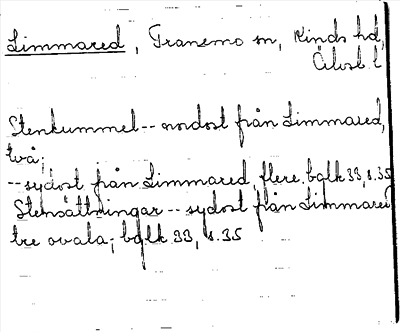 Limmared, Tranemo sn, Kinds hd,
Älvsb. l
Stenkummel -- nordost från Limmared,
två;
-- sydost från Limmared, flere. bglk 33, s.35
Stensättningar -- sydost från Limmared
tre ovala; bglk 33, s.35